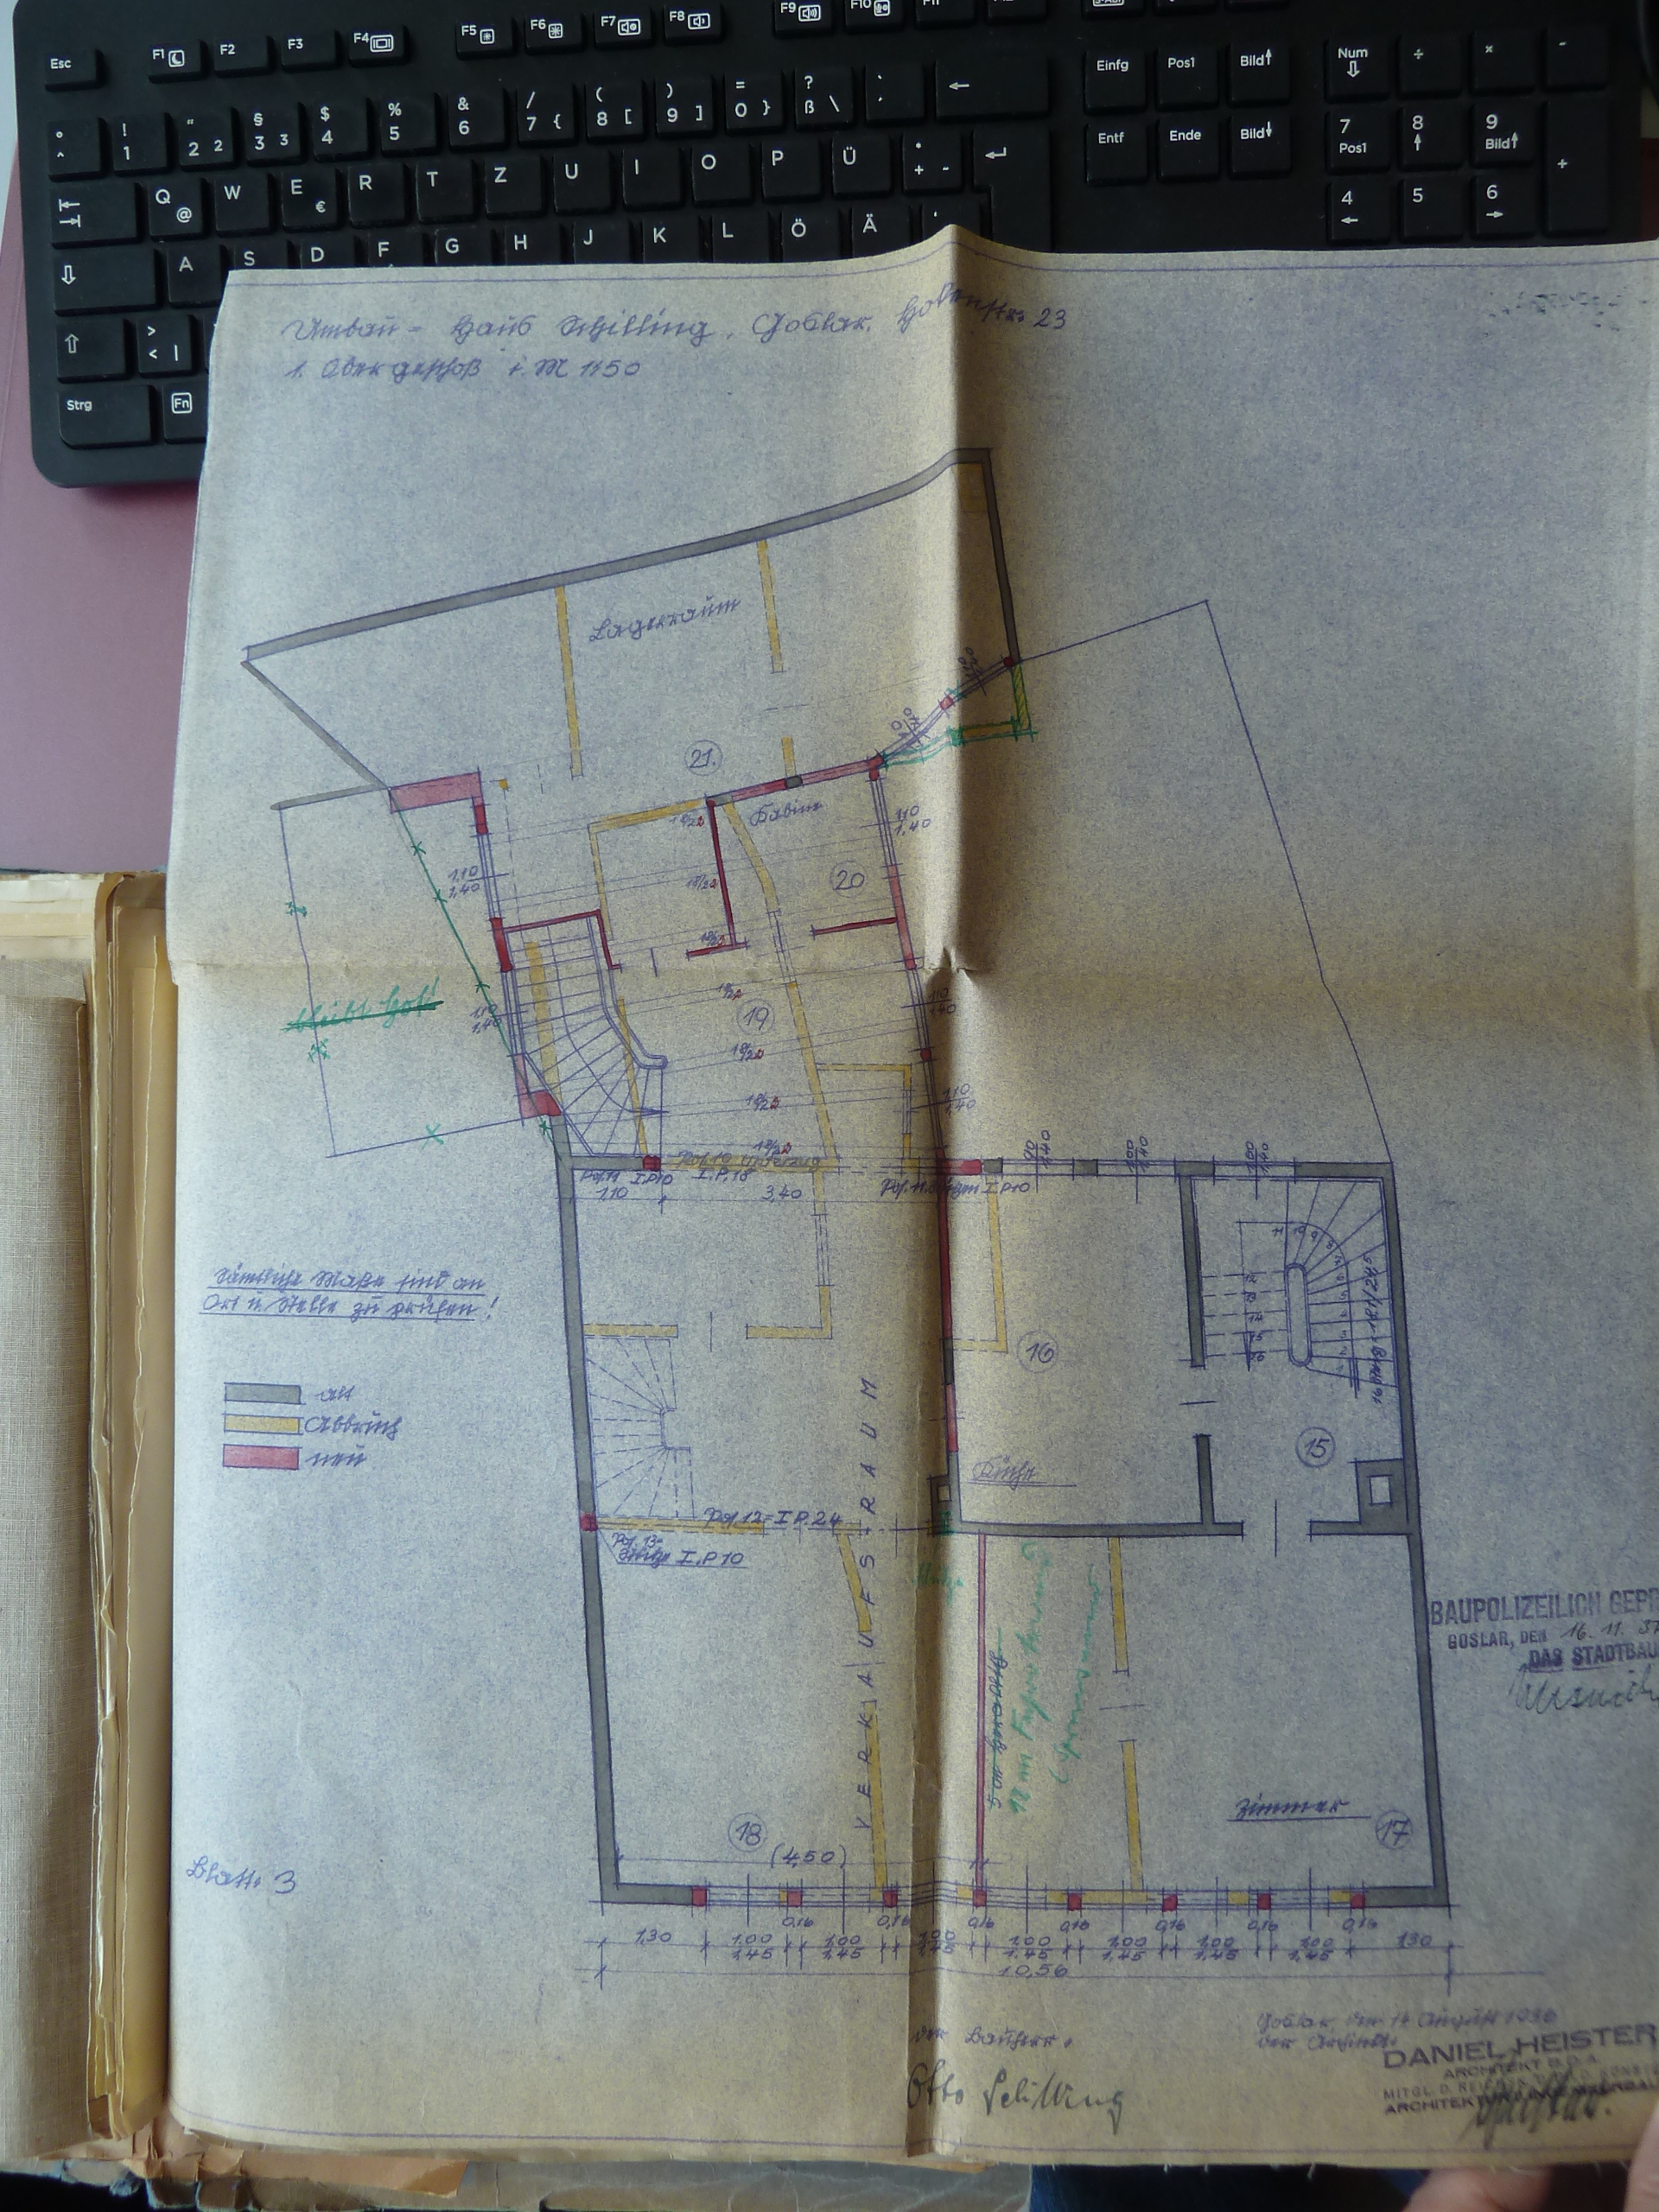 Esc
F1
F2
F3
F4
F5
F6
F7
F8
F9
F10
Einfg
Pos1
Bild↑
Num
÷
×
-
°
^
!
1
"
2 2
§
3 3
$
4
%
5
&
6
/
7 {
(
8 [
)
9 ]
=
0 }
?
ß \
Entf
Ende
Bild↓
7
Pos1
8
9
Bild↑
+
Q
@
W
E
€
R
T
Z
U
I
O
P
Ü
*
+ ~
4
5
6
A
S
D
F
G
H
J
K
L
Ö
Ä
'
>
< |
Strg
Fn
Umbau - Haus Schilling, Goslar, Hokenstr. 23
1. Obergeschoß i. M 1:50
Lagerraum
21.
Kabine
18/22
1,10
1,40
18/22
20
1,10
1,40
18/22
bleibt Hof!
1,10
1,40
18/22
19
1,10
1,40
18/22
18/22
1,10
1,40
18/22
Pos. 10 Unterzug
I.P. 18
Pos. 11 I.P. 10
1,10
3,40
I.P. 10
90
1,40
1,00
1,40
1,00
1,40
Sämtliche Maße sind an
Ort u. Stelle zu prüfen!
alt
Abbruch
neu
16
Küche
15
Pos. 12 = I.P. 24
Pos. 13 =
Stütze I.P. 10
VERKAUFSRAUM
BAUPOLIZEILICH GEPR
GOSLAR, DEN 16. 11. 37
DAS STADTBAU
Zimmer
17
18
(4,50)
Blatt: 3
0,16 0,16 0,16 0,16 0,16 0,16 0,16
1,30 1,00 1,00 1,00 1,00 1,00 1,00 1,00 1,30
1,45 1,45 1,45 1,45 1,45 1,45 1,45
10,56
der Bauherr:
Otto Schilling
Goslar, den 14 August 1936
der Architekt:
DANIEL HEISTER
ARCHITEKT B.D.A.